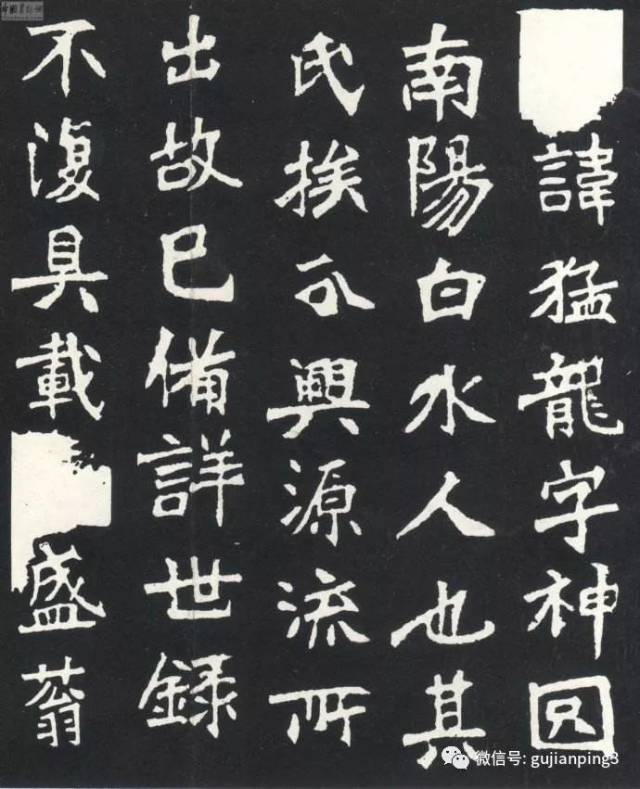 諱猛龍字神囧
南陽白水人也其
氏族分興源流所
出故已備詳世録
不復具載盛蓊
微信号: gujianping3